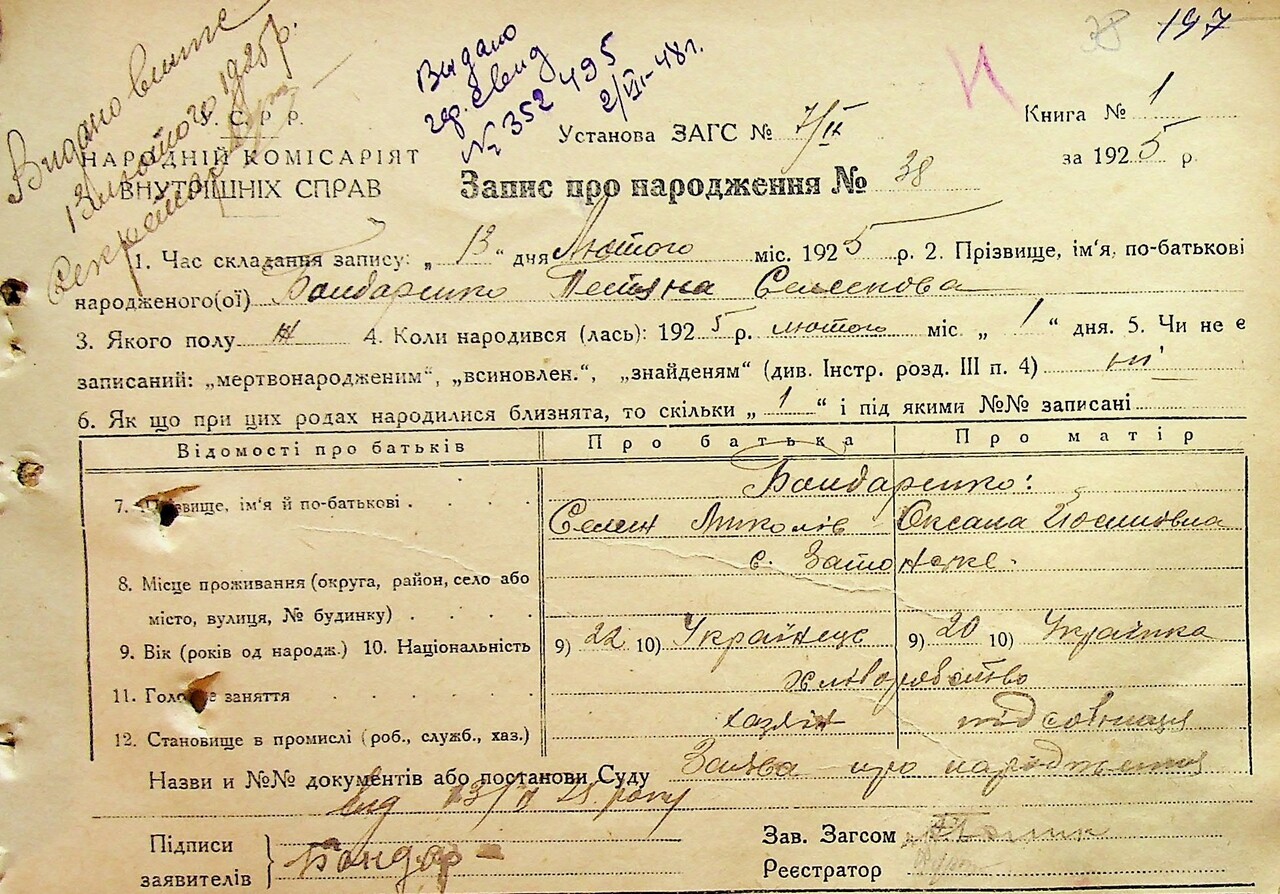 38 197
Видано витяг
13 лютого 1925 р.
Секретар
Видано
гр. свид
№ 352495
2/VII-48 г.
И
У. С. Р. Р.
НАРОДНІЙ КОМІСАРІЯТ
ВНУТРІШНІХ СПРАВ
Установа ЗАГС № 7/ІІ
Книга № 1
за 1925 р.
Запис про народження № 38
1. Час складання запису: „ 13 “ дня Лютого міс. 1925 р. 2. Прізвище, ім'я, по-батькові
народженого(ої) Бондаренко Тетяна Семенова
3. Якого полу ж 4. Коли народився (лась): 1925 р. лютого міс. „ 1 “ дня. 5. Чи не є
записаний: „мертвонародженим“, „всиновлен.“, „знайденям“ (див. Інстр. розд. III п. 4) ні
6. Як що при цих родах народилися близнята, то скільки „ 1 “ і під якими №№ записані
Відомості про батьків Про батька Про матір
Бондаренко:
7. Прізвище, ім'я й по-батькові . . . .
Семен Миколів Оксана Йосиповна
с. Затонске.
8. Місце проживання (округа, район, село або
місто, вулиця, № будинку) . . . .
9. Вік (років од народж.) 10. Національність 9) 22 10) Українець 9) 20 10) Українка
хліборобство
11. Головне заняття . . . . . .
12. Становище в промислі (роб., служб., хаз.) хазяїн підсобниця
Назви и №№ документів або постанови Суду Заява про народження
від 13/II 25 року
Підписи
заявителів } Бондар
Зав. Загсом
Реєстратор